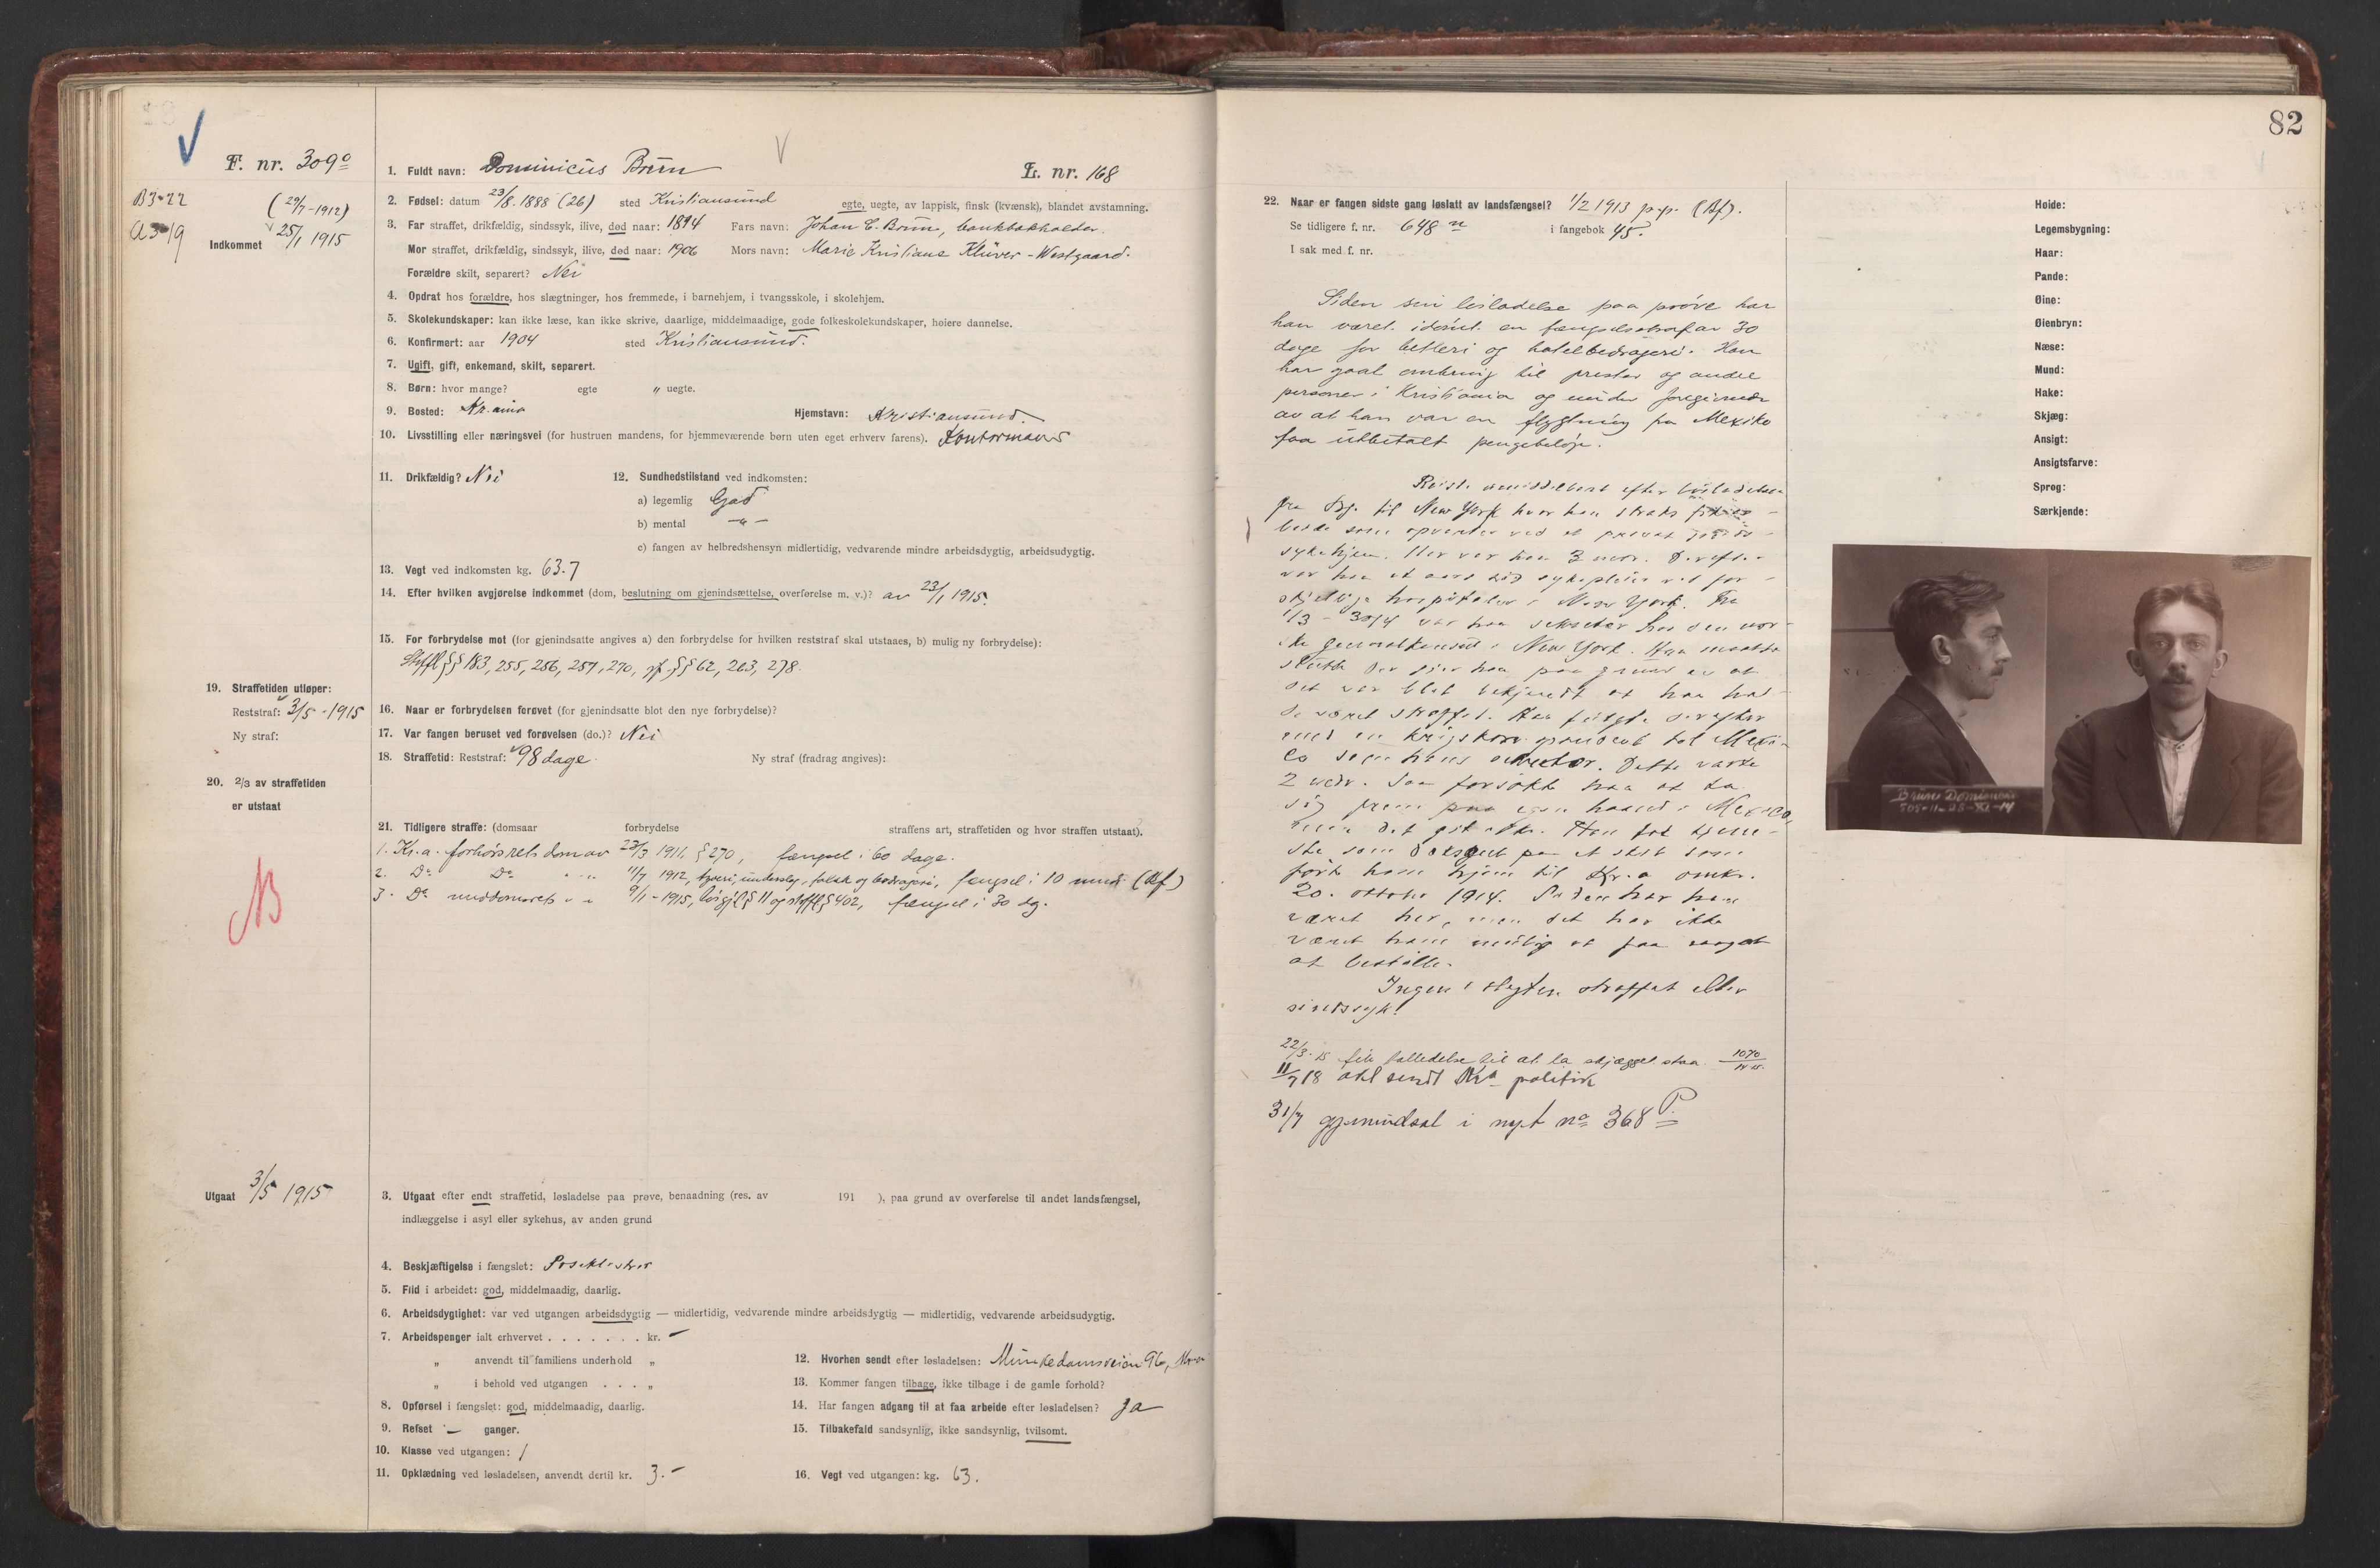 F. nr. 309º
B3-22
A3-19
(29/7-1912)
Indkommet 25/1 1915
1. Fuldt navn: Dominicus Brun
L. nr. 168
2. Fødsel: datum 23/8.1888 (26) sted Kristiansund egte, uegte, av lappisk, finsk (kvænsk), blandet avstamning.
3. Far straffet, drikfældig, sindssyk, ilive, død naar: 1894 Fars navn: Johan C. Brun, bankbokholder.
Mor straffet, drikfældig, sindssyk, ilive, død naar: 1906 Mors navn: Marie Kristiane Klüver-Westgaard.
Forældre skilt, separert? Nei
4. Opdrat hos forældre, hos slægtninger, hos fremmede, i barnehjem, i tvangsskole, i skolehjem.
5. Skolekundskaper: kan ikke læse, kan ikke skrive, daarlige, middelmaadige, gode folkeskolekundskaper, høiere dannelse.
6. Konfirmert: aar 1904 sted Kristiansund.
7. Ugift, gift, enkemand, skilt, separert.
8. Børn: hvor mange? egte „ uegte.
9. Bosted: Kr.ania Hjemstavn: Kristiansund
10. Livsstilling eller næringsvei (for hustruen mandens, for hjemmeværende børn uten eget erhverv farens). Kontormand
11. Drikfældig? Nei
12. Sundhedstilstand ved indkomsten:
a) legemlig God
b) mental -"-
c) fangen av helbredshensyn midlertidig, vedvarende mindre arbeidsdygtig, arbeidsudygtig.
13. Vegt ved indkomsten kg. 63.7
14. Efter hvilken avgjørelse indkommet (dom, beslutning om gjenindsættelse, overførelse m. v.)? av 23/1 1915.
15. For forbrydelse mot (for gjenindsatte angives a) den forbrydelse for hvilken reststraf skal utstaaes, b) mulig ny forbrydelse):
Strffl §§ 183, 255, 256, 257, 270, jf. §§ 62, 263, 278.
19. Straffetiden utløper:
Reststraf: 3/5-1915
Ny straf:
16. Naar er forbrydelsen forøvet (for gjenindsatte blot den nye forbrydelse)?
17. Var fangen beruset ved forøvelsen (do.)? Nei
18. Straffetid: Reststraf: 98 dage. Ny straf (fradrag angives):
20. 2/3 av straffetiden
er utstaat
21. Tidligere straffe: (domsaar forbrydelse straffens art, straffetiden og hvor straffen utstaat).
1. Kr.a. forhørsrets dom av 23/3 1911, § 270, fængsel i 60 dage.
2. Do Do " " 11/7 1912, tyveri, underslag, falsk og bedrageri, fængsel i 10 mndr. (Bf)
3. Do meddomsrets " " 9/1-1915, løsgjl § 11 og strffl § 402, fængsel i 30 dg.
NB
Utgaat 3/5 1915
3. Utgaat efter endt straffetid, løsladelse paa prøve, benaadning (res. av 191 ), paa grund av overførelse til andet landsfængsel,
indlæggelse i asyl eller sykehus, av anden grund
4. Beskjæftigelse i fængslet: Poseklistrer
5. Flid i arbeidet: god, middelmaadig, daarlig.
6. Arbeidsdygtighet: var ved utgangen arbeidsdygtig — midlertidig, vedvarende mindre arbeidsdygtig — midlertidig, vedvarende arbeidsudygtig.
7. Arbeidspenger ialt erhvervet . . . . . . . kr. -
„ anvendt til familiens underhold „
„ i behold ved utgangen . . . „
8. Opførsel i fængslet: god, middelmaadig, daarlig.
9. Refset - ganger.
10. Klasse ved utgangen: 1
11. Opklædning ved løsladelsen, anvendt dertil kr. 3.-
12. Hvorhen sendt efter løsladelsen: Munkedamsveien 96,
13. Kommer fangen tilbage, ikke tilbage i de gamle forhold?
14. Har fangen adgang til at faa arbeide efter løsladelsen? Ja
15. Tilbakefald sandsynlig, ikke sandsynlig, tvilsomt.
16. Vegt ved utgangen: kg. 63.
82
22. Naar er fangen sidste gang løslatt av landsfængsel? 1/2 1913 p.p. (Bf).
Se tidligere f. nr. 648 n i fangebok 45.
I sak med f. nr.
Siden sin løsladelse paa prøve har
han været idømt en fængselsstraf av 30
dage for betleri og hotelbedrageri. Han
har gaat omkring til prester og andre
personer i Kristiania og under foregivende
av at han var en flygtning fra Mexiko
faa utbetalt pengebeløp.
Reiste umiddelbart efter løsladelsen
fra Bg. til New York hvor han straks fik ar-
beide som opvarter ved et privat
sykehjem. Her var han 3 mdr. Derefter
var han et aars tid sykepleier ved for-
skjellige hospitaler i New York. Fra
1/3 - 30/4 var han sekretær hos den nor-
ske generalkonsul i New York. Han maatte
slutte der sier han paa grund av at
det var blit bekjendt at han had-
de været straffet. Han fulgte derefter
med en krigskorrespondent til Mexi-
co som hans sekretær. Dette varte
2 mdr. Saa forsøkte han at ta
sig frem paa egen haand i Mexico,
men det gik ikke. Han fik tjene-
ste som paa et skib som
førte ham hjem til Kr.a omkr.
20. oktober 1914. Siden har han
været her, men det har ikke
været ham mulig at faa noget
at bestille.
Ingen i slegten straffet eller
sindssyk.
22/3.15 fik tilladelse til at la skjægget staa 1070
11/7 18 akt sendt Kra politik
31/7 gjenindsat i nyt no 368 P.
Høide:
Legemsbygning:
Haar:
Pande:
Øine:
Øienbryn:
Næse:
Mund:
Hake:
Skjæg:
Ansigt:
Ansigtsfarve:
Sprog:
Særkjende:
Brun Dominicus
505-11-28-XI-14